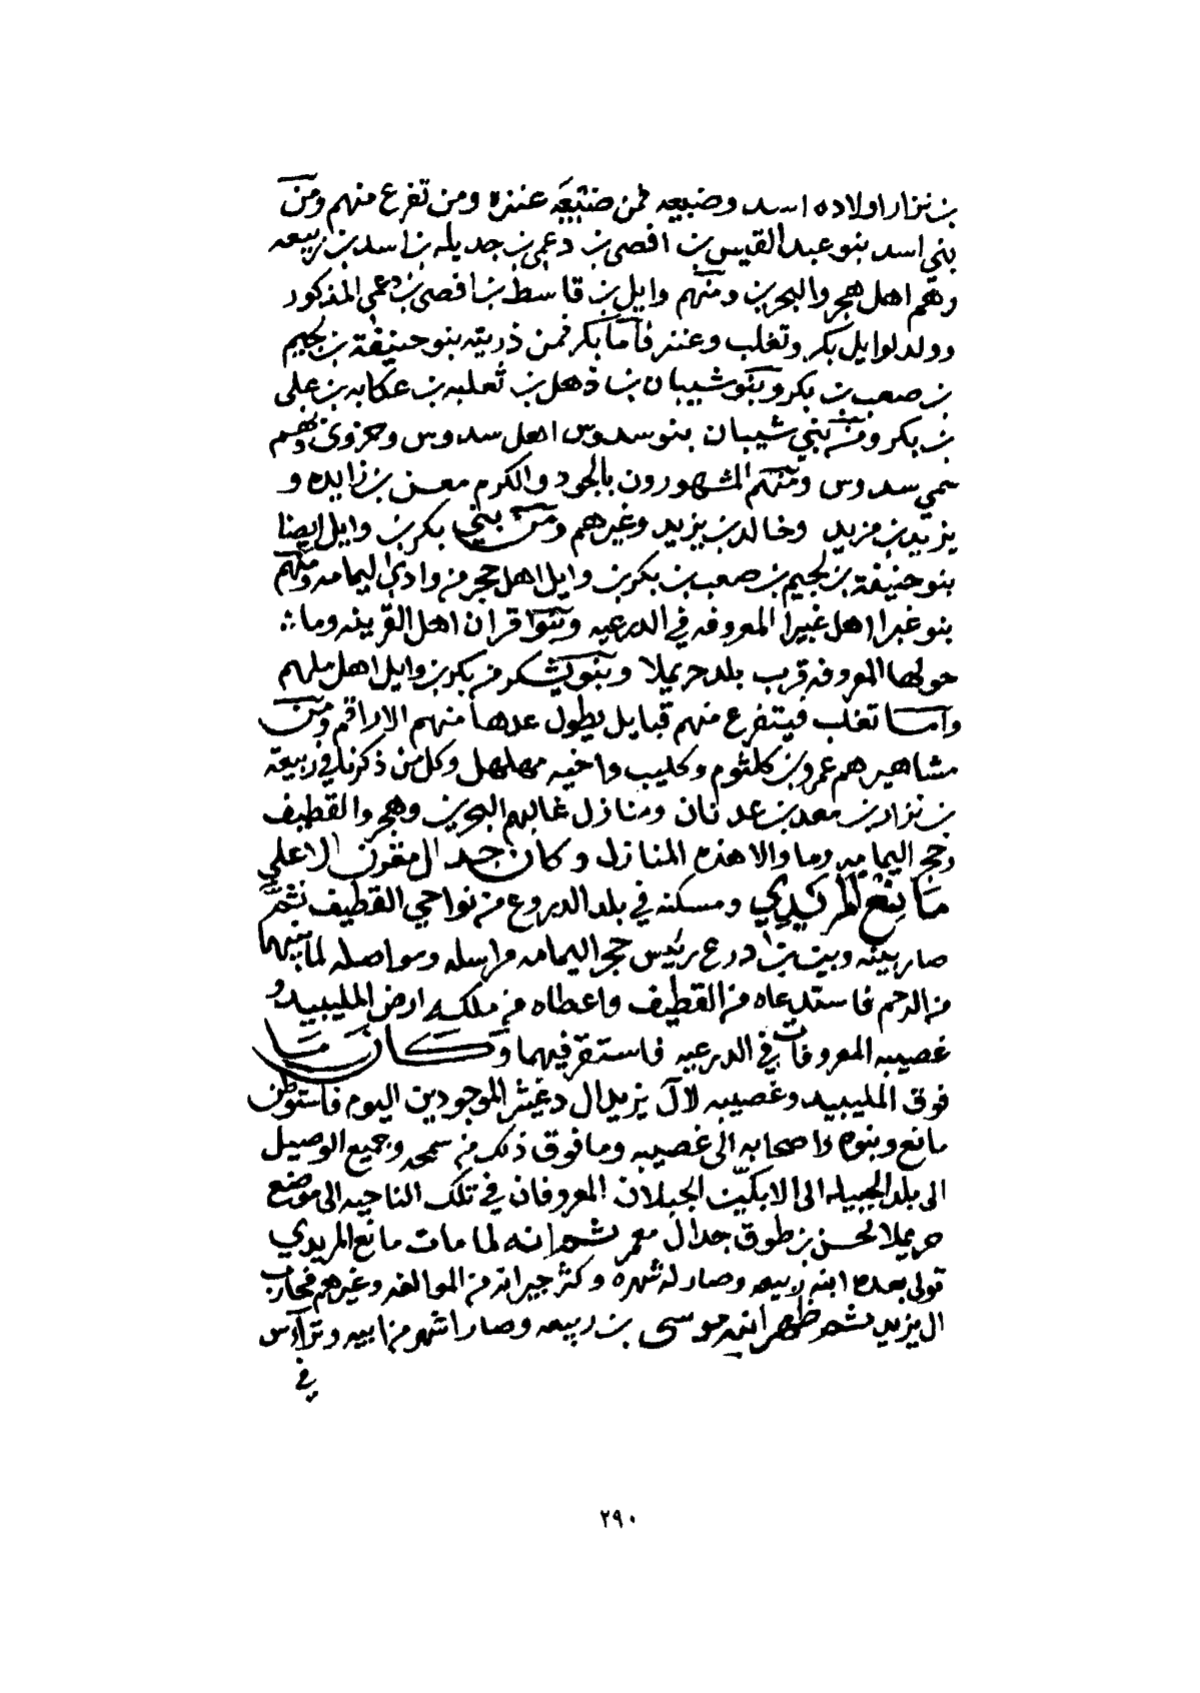 بن نزار اولاده اسد وضبيعه فمن ضبيعه عنزه ومن تفرع منهم ومن
بني اسد بنو عبد القيس بن افصى بن دعمي بن جديله بن اسد بن ربيعه
وهم اهل هجر والبحرين ومنهم وايل بن قاسط بن افصى بن دعمي المذكور
وولد لوايل بكر وتغلب وعنز فاما بكر فمن ذريته بنو حنيفة بن لجيم
بن صعب بن بكر وبنو شيبان بن ذهل بن ثعلبه بن عكابه بن علي
بن بكر ومن بني شيبان بنو سدوس اهل سدوس وحزوى وبهم
سمي سدوس ومنهم المشهورون بالجود والكرم معن بن زايده و
يزيد بن مزيد وخالد بن يزيد وغيرهم ومن بني بكر بن وايل ايضا
بنو حنيفة بن لجيم بن صعب بن بكر بن وايل اهل حجر من وادي اليمامه ومنهم
بنو غبرا اهل غبيرا المعروفه في الدرعيه وبنوا قران اهل القرينه وما
حولها المعروفه قرب بلد حريملا وبنو يشكر من بكر بن وايل اهل ملهم
واما تغلب فيتفرع منهم قبايل يطول عدها منهم الاراقم ومن
مشاهيرهم عمرو بن كلثوم وكليب واخيه مهلهل وكل من ذكرنا في ربيعة
بن نزار بن معد بن عدنان ومنازل غالبهم البحرين وهجر والقطيف
وحجر اليمامه وما والا هذه المنازل وكان جد ال مقرن الاعلى
مانع المريدي ومسكنه في بلد الدروع من نواحي القطيف ثم
صار بينه وبين بن درع رئيس حجر اليمامه مراسله ومواصله لما بينهما
من الرحم فاستدعاه من القطيف واعطاه من ملكه ارض المليبيد و
غصيبه المعروفات في الدرعيه فاستقر فيهما وكان ما
فوق المليبيد وغصيبه لال يزيد ال دغيثر الموجودين اليوم فاستوطن
مانع وبنوه واصحابه الى غصيبه وما فوق ذلك من سمحه وجميع الوصيل
الى بلد الجبيله الى الابكين الجبلان المعروفان في تلك الناحيه الى موضع
حريملا لحسن بن طوق جد ال معمر ثم انه لما مات مانع المريدي
تولى بعده ابنه ربيعه وصار له شهره وكثر جيرانه من الموالفه وغيرهم فحارب
ال يزيد ثم ظهر ابنه موسى بن ربيعه وصار اشهر من ابيه وتراس
في
٢٩٠